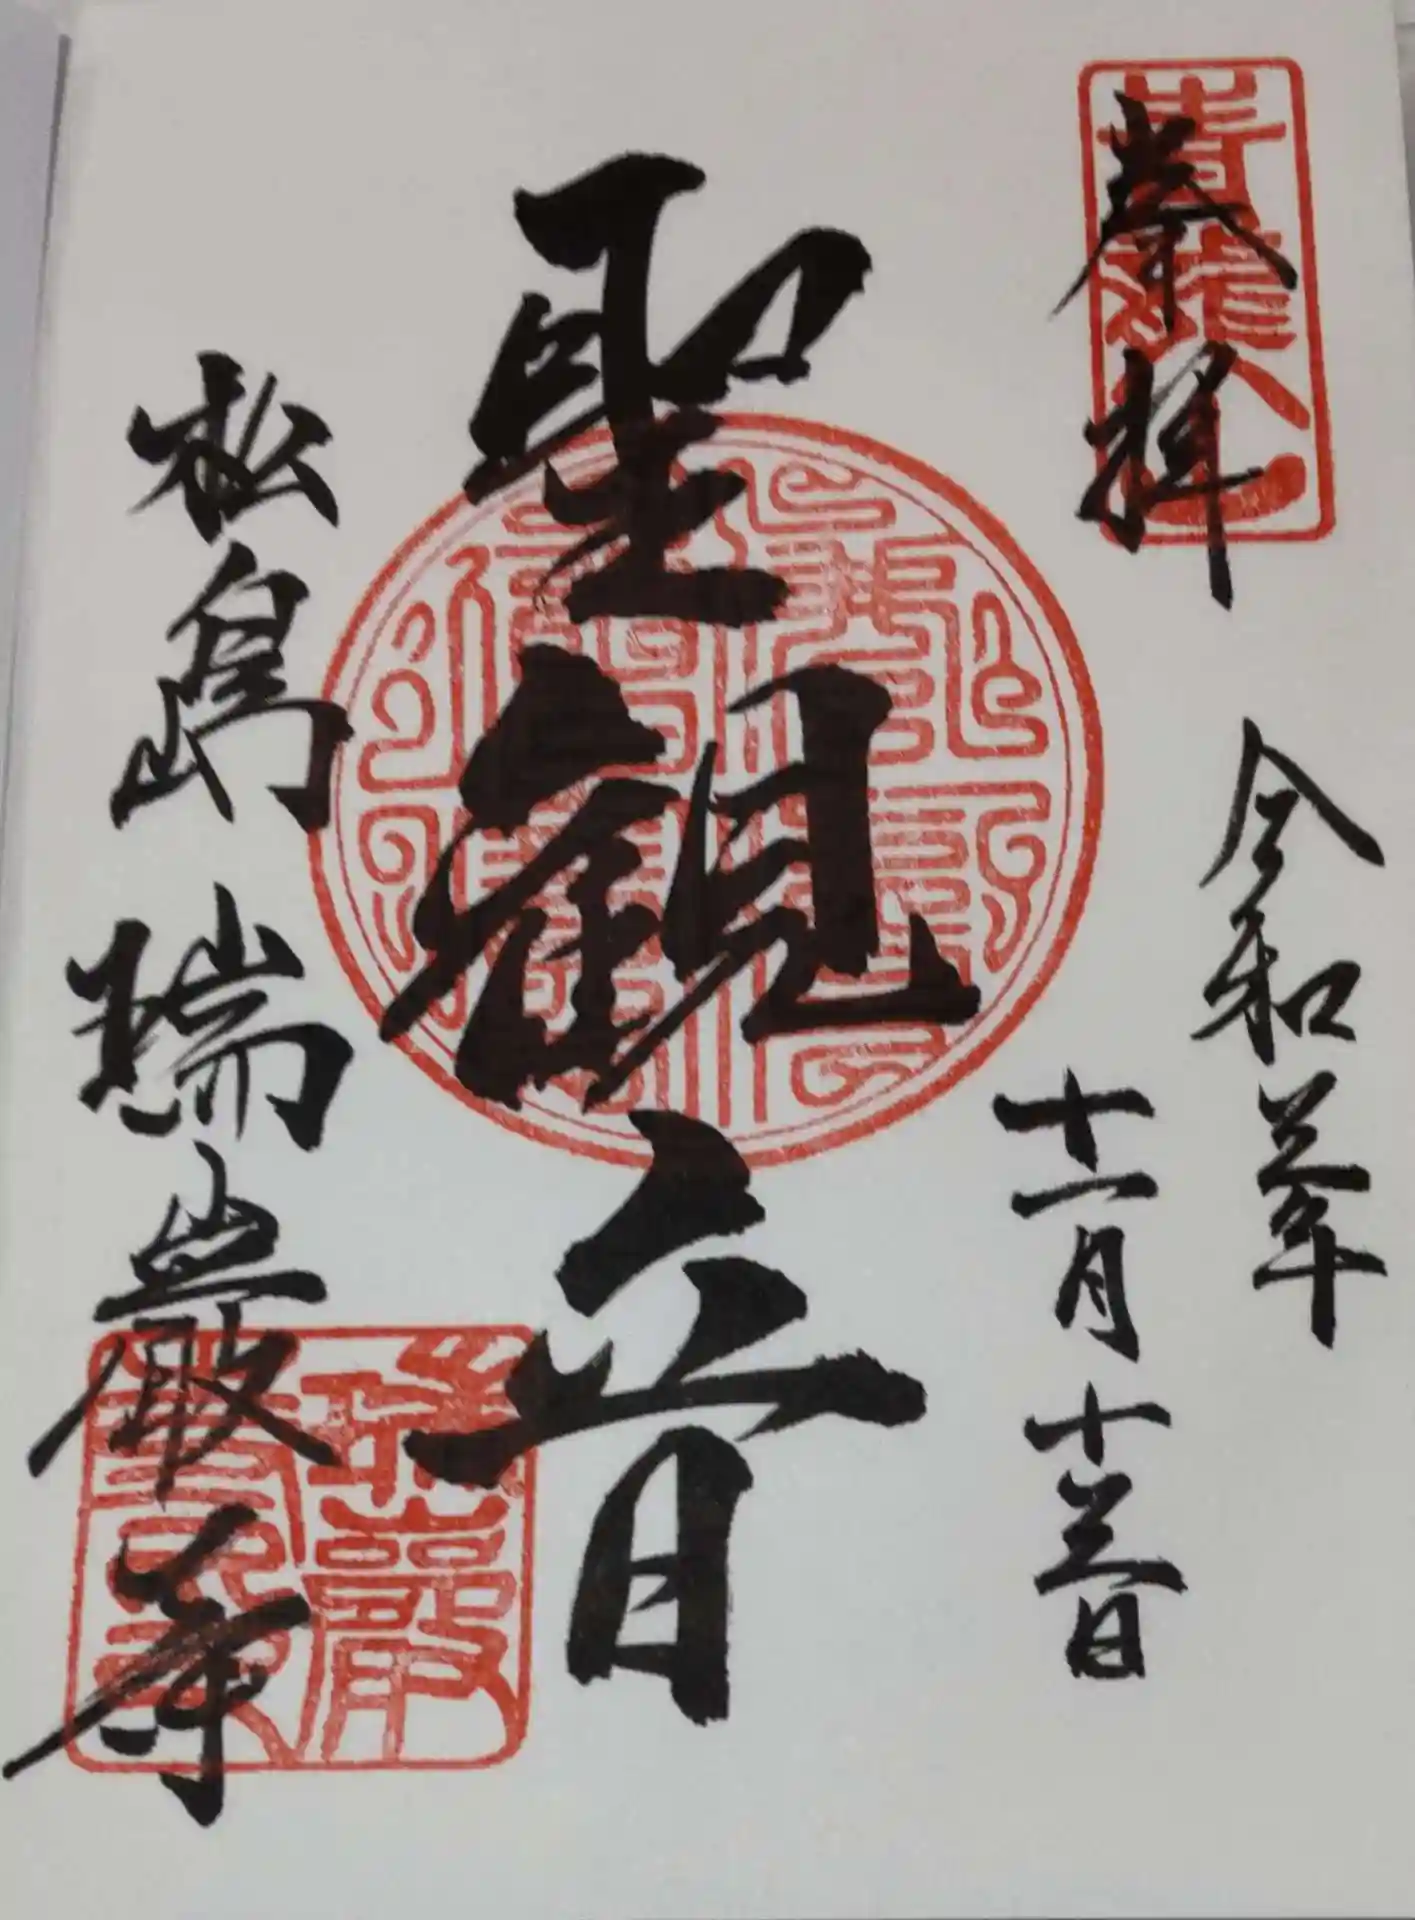 奉拝
令和三年
十一月十三日
聖観音
松島瑞巌寺
青龍山
瑞巌